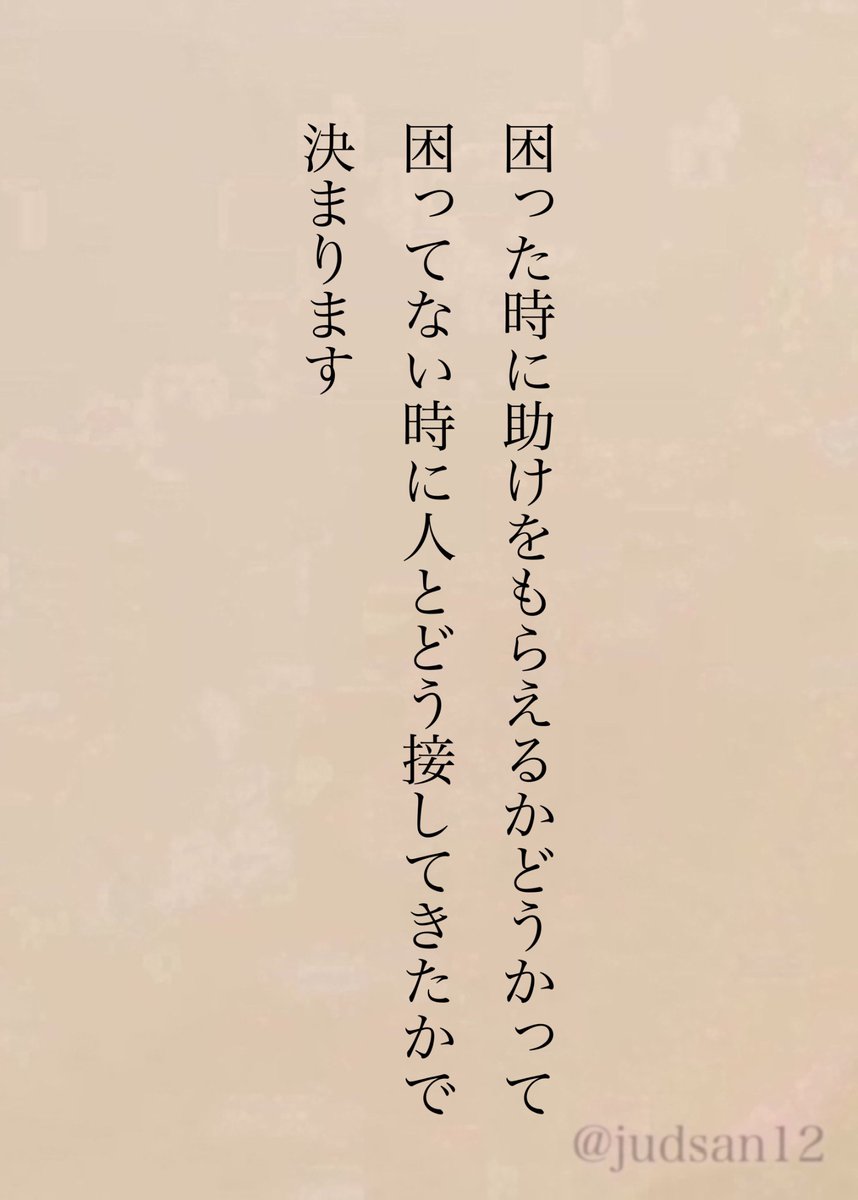 困った時に助けをもらえるかどうかって
困ってない時に人とどう接してきたかで
決まります
@judsan12